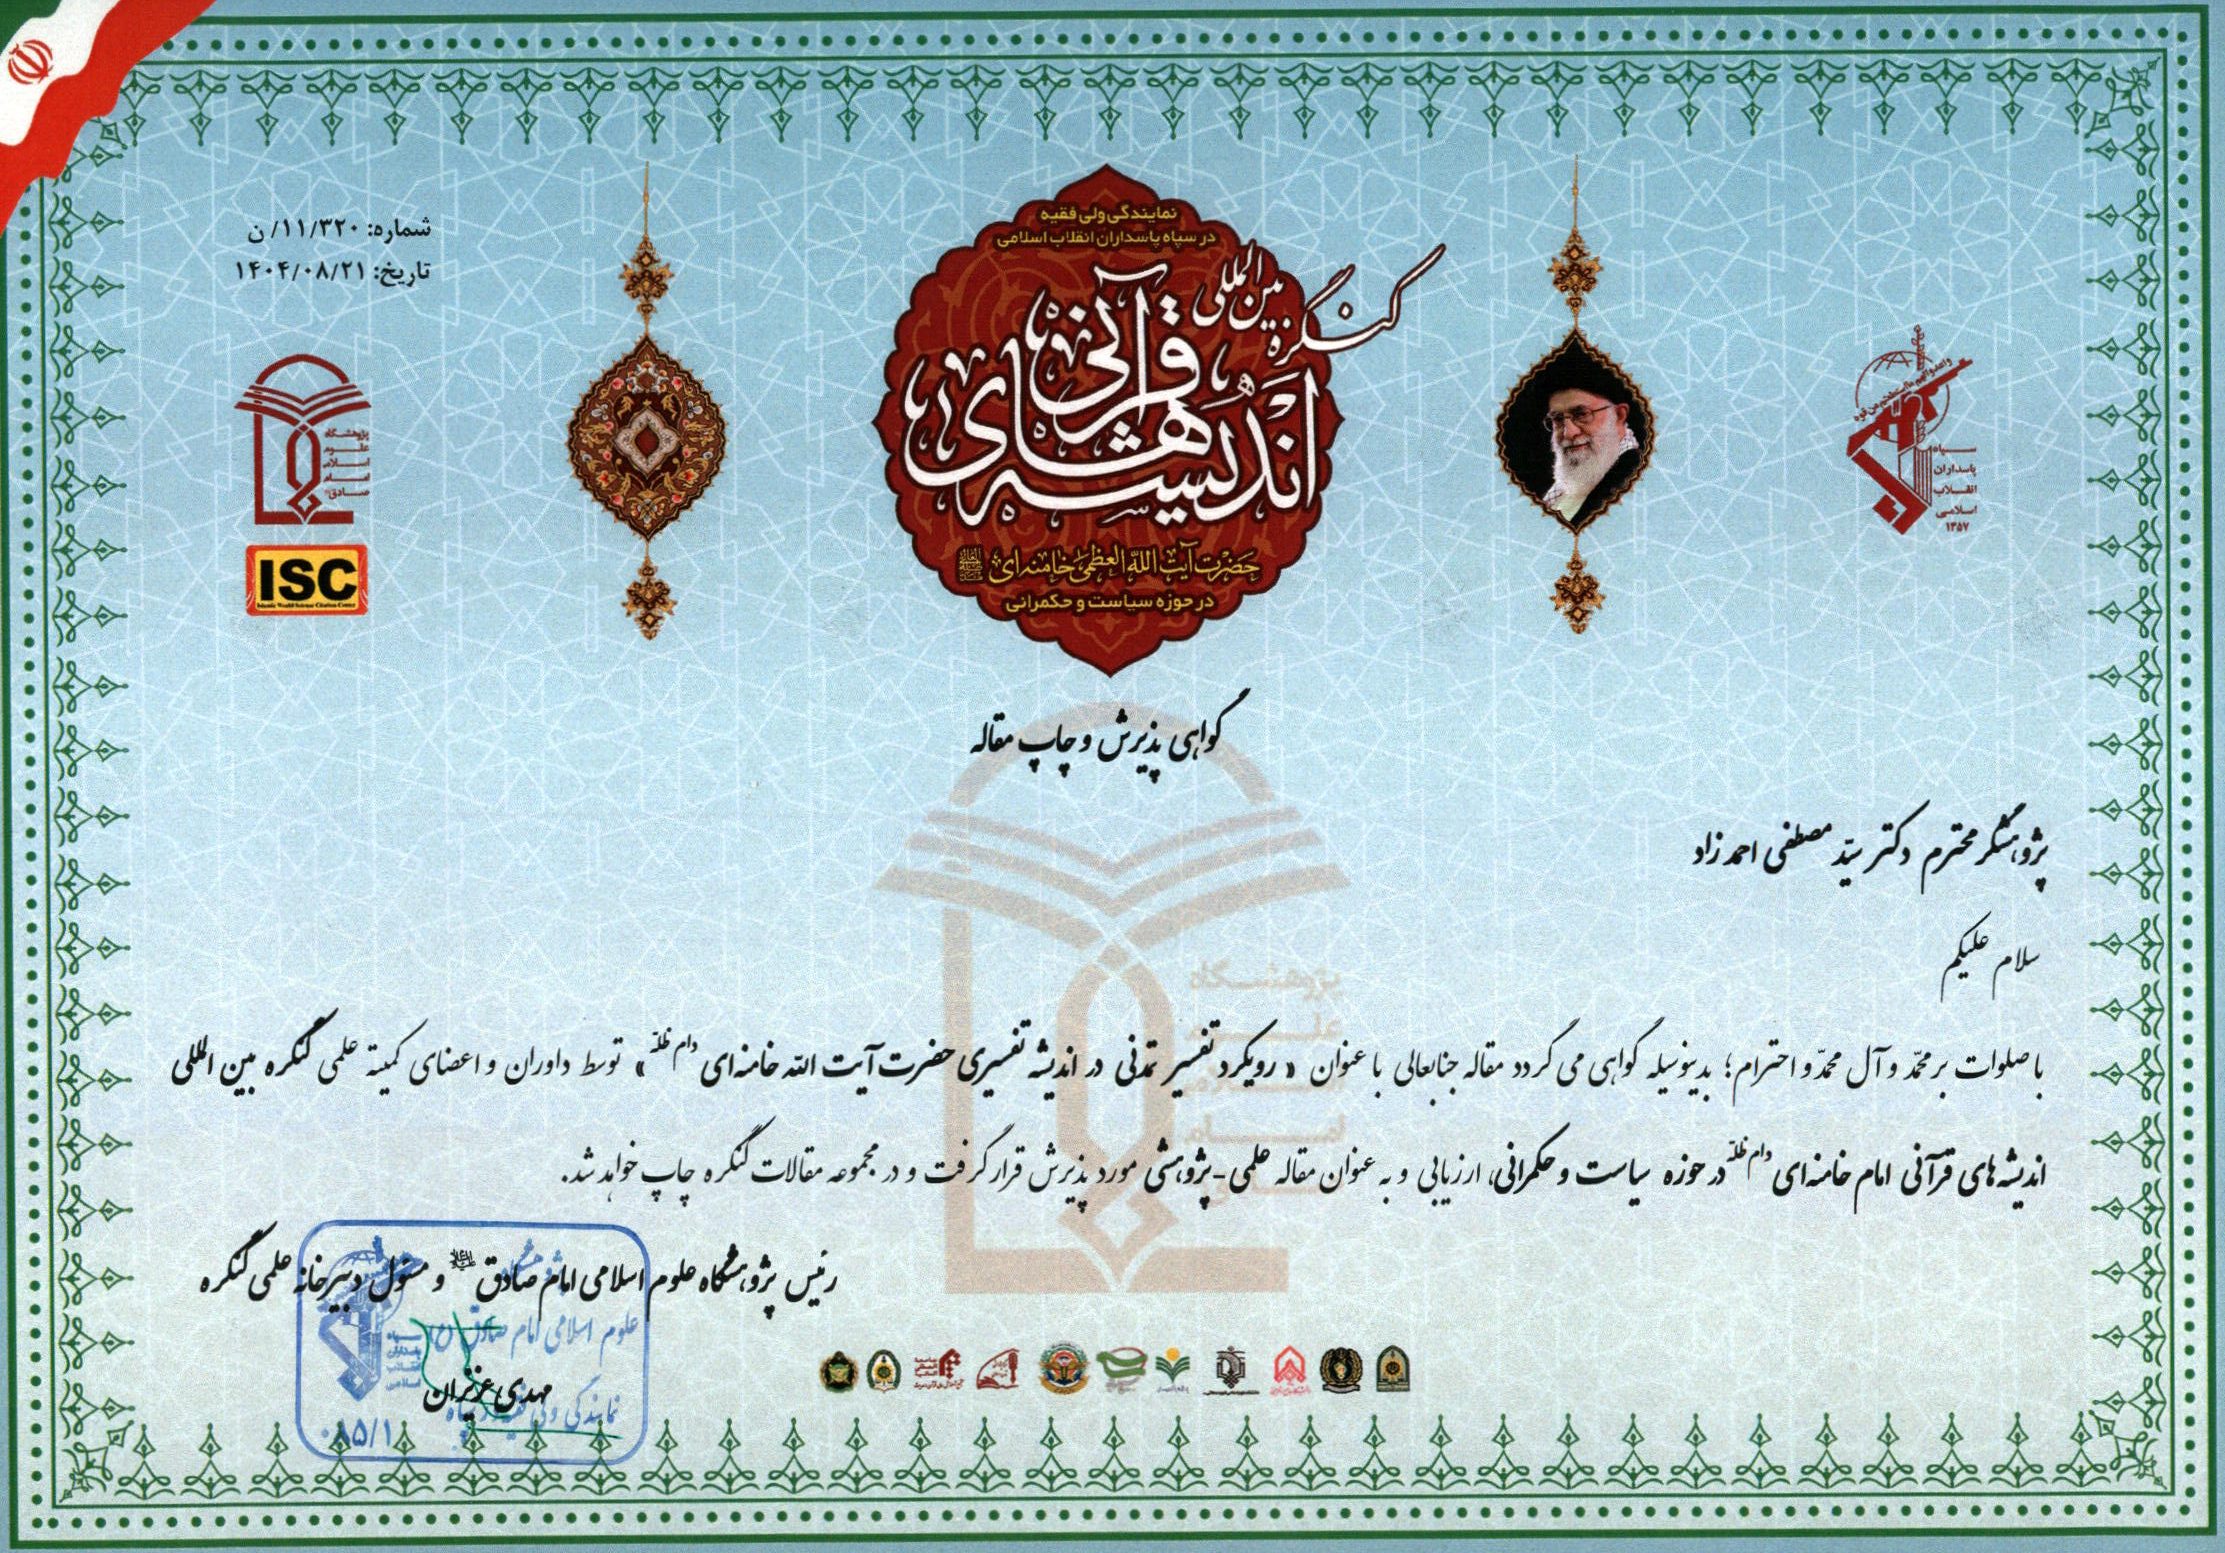 شماره: ۱۱/۳۲۰/ ن
تاریخ: ۱۴۰۴/۰۸/۲۱
نمایندگی ولی فقیه
در سپاه پاسداران انقلاب اسلامی
کنگره بین المللی
اندیشه های قرآنی
حضرت آیت الله العظمی خامنه ای
در حوزه سیاست و حکمرانی
سپاه
پاسداران
انقلاب
اسلامی
۱۳۵۷
پژوهشگاه
علوم
اسلامی
امام
صادق
ISC
Islamic World Science Citation Center
گواهی پذیرش و چاپ مقاله
پژوهشگر محترم دکتر سیّد مصطفی احمدزاد
سلام علیکم
با صلوات بر محمّد و آل محمّد و احترام؛ بدینوسیله گواهی می گردد مقاله جنابعالی با عنوان « رویکرد تفسیر تمدنی در اندیشه تفسیری حضرت آیت الله خامنه ای دام ظلّه » توسط داوران و اعضای کمیته علمی کنگره بین المللی
اندیشه های قرآنی امام خامنه ای دام ظلّه در حوزه سیاست و حکمرانی، ارزیابی و به عنوان مقاله علمی-پژوهشی مورد پذیرش قرار گرفت و در مجموعه مقالات کنگره چاپ خواهد شد.
رئیس پژوهشگاه علوم اسلامی امام صادق و مسئول دبیرخانه علمی کنگره
علوم اسلامی امام صادق
مهدی عزیزان
نمایندگی ولی فقیه در سپاه